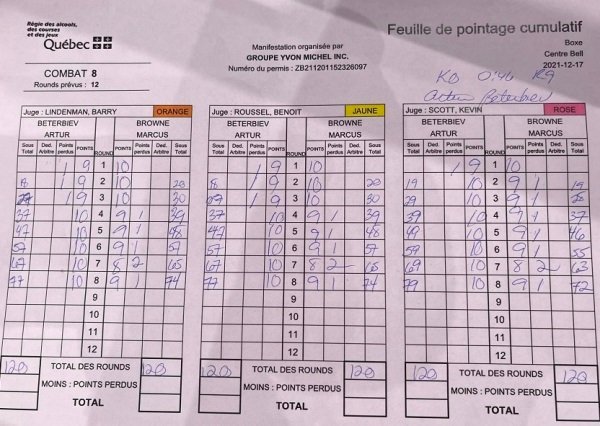 Régie des alcools,
des courses
et des jeux
Québec
Feuille de pointage cumulatif
Manifestation organisée par
GROUPE YVON MICHEL INC.
Numéro du permis : ZB211201152326097
Boxe
Centre Bell
2021-12-17
COMBAT 8
Rounds prévus : 12
KO 0:46 R9
Artur Beterbiev
Juge : LINDENMAN, BARRY ORANGE
BETERBIEV ARTUR BROWNE MARCUS
Sous Total Ded. Arbitre Points perdus POINTS ROUND POINTS Points perdus Ded. Arbitre Sous Total
1 9 1 10
18 1 9 2 10 20
27 1 9 3 10 30
37 10 4 9 1 39
47 10 5 9 1 48
57 10 6 9 1 57
67 10 7 8 2 65
77 10 8 9 1 74
9
10
11
12
120 TOTAL DES ROUNDS 120
MOINS : POINTS PERDUS
TOTAL
Juge : ROUSSEL, BENOIT JAUNE
BETERBIEV ARTUR BROWNE MARCUS
Sous Total Ded. Arbitre Points perdus POINTS ROUND POINTS Points perdus Ded. Arbitre Sous Total
1 9 1 10
18 1 9 2 10 20
1 9 3 10 30
37 10 4 9 1 39
47 10 5 9 1 48
57 10 6 9 1 57
67 10 7 8 2 65
77 10 8 9 1 74
9
10
11
12
120 TOTAL DES ROUNDS 120
MOINS : POINTS PERDUS
TOTAL
Juge : SCOTT, KEVIN ROSE
BETERBIEV ARTUR BROWNE MARCUS
Sous Total Ded. Arbitre Points perdus POINTS ROUND POINTS Points perdus Ded. Arbitre Sous Total
1 9 1 10
19 10 2 9 1 19
29 10 3 9 1 28
39 10 4 9 1 37
49 10 5 9 1 46
59 10 6 9 1 55
69 10 7 8 2 63
79 10 8 9 1 72
9
10
11
12
120 TOTAL DES ROUNDS 120
MOINS : POINTS PERDUS
TOTAL